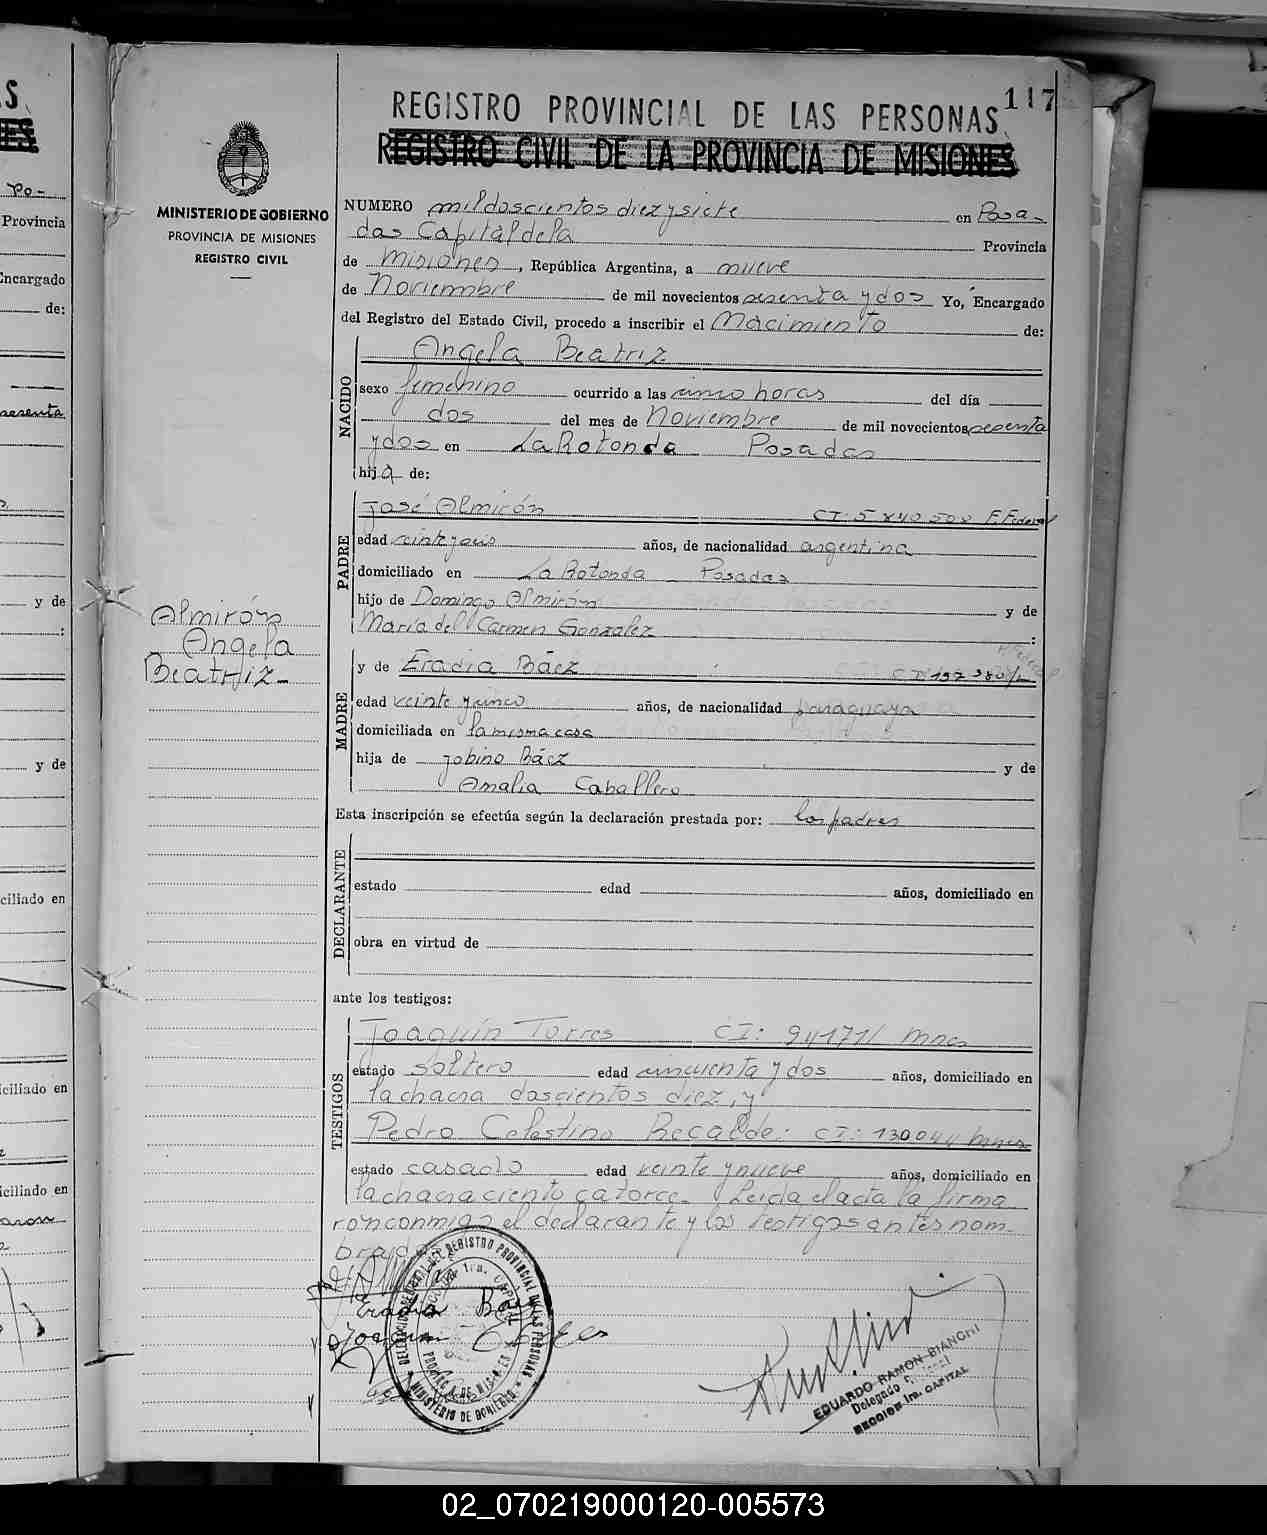 117
REGISTRO PROVINCIAL DE LAS PERSONAS
REGISTRO CIVIL DE LA PROVINCIA DE MISIONES
MINISTERIO DE GOBIERNO
PROVINCIA DE MISIONES
REGISTRO CIVIL
NUMERO mil doscientos diez y siete en Posa-
das Capital de la Provincia
de Misiones, República Argentina, a nueve
de Noviembre de mil novecientos sesenta y dos Yo, Encargado
del Registro del Estado Civil, procedo a inscribir el Nacimiento de:
NACIDO
Angela Beatriz
sexo femenino ocurrido a las cinco horas del día
dos del mes de Noviembre de mil novecientos sesenta
y dos en La Rotonda Posadas
hija de:
PADRE
José Almirón CI: F. Federal
edad años, de nacionalidad argentina
domiciliado en La Rotonda Posadas
hijo de Domingo Almirón y de
María del Carmen Gonzalez :
Almirón
Angela
Beatriz-
MADRE
y de Eradia Báez
edad veinte y cinco años, de nacionalidad paraguaya
domiciliada en la misma casa
hija de Jobino Báez y de
Amalia Caballero
Esta inscripción se efectúa según la declaración prestada por: los padres
DECLARANTE
estado edad años, domiciliado en
obra en virtud de
ante los testigos:
TESTIGOS
Joaquín Torres CI: 94171/ Mnes
estado soltero edad cincuenta y dos años, domiciliado en
la chacra doscientos diez, y
Pedro Celestino Recalde: CI: 130044 Mnes
estado casado edad veinte y nueve años, domiciliado en
la chacra ciento catorce. Leida el acta la firma
ron conmigo el declarante y los testigos antes nom-
brados
Eradia Baez
Joaquin Torres
REGISTRO PROVINCIAL DE LAS PERSONAS
MINISTERIO DE GOBIERNO
EDUARDO RAMON BIANCHI
Delegado
SECCION 1ra. CAPITAL
Provincia
Encargado
de:
sesenta
y de
:
y de
ciliado en
iciliado en
iciliado en
02_070219000120-005573